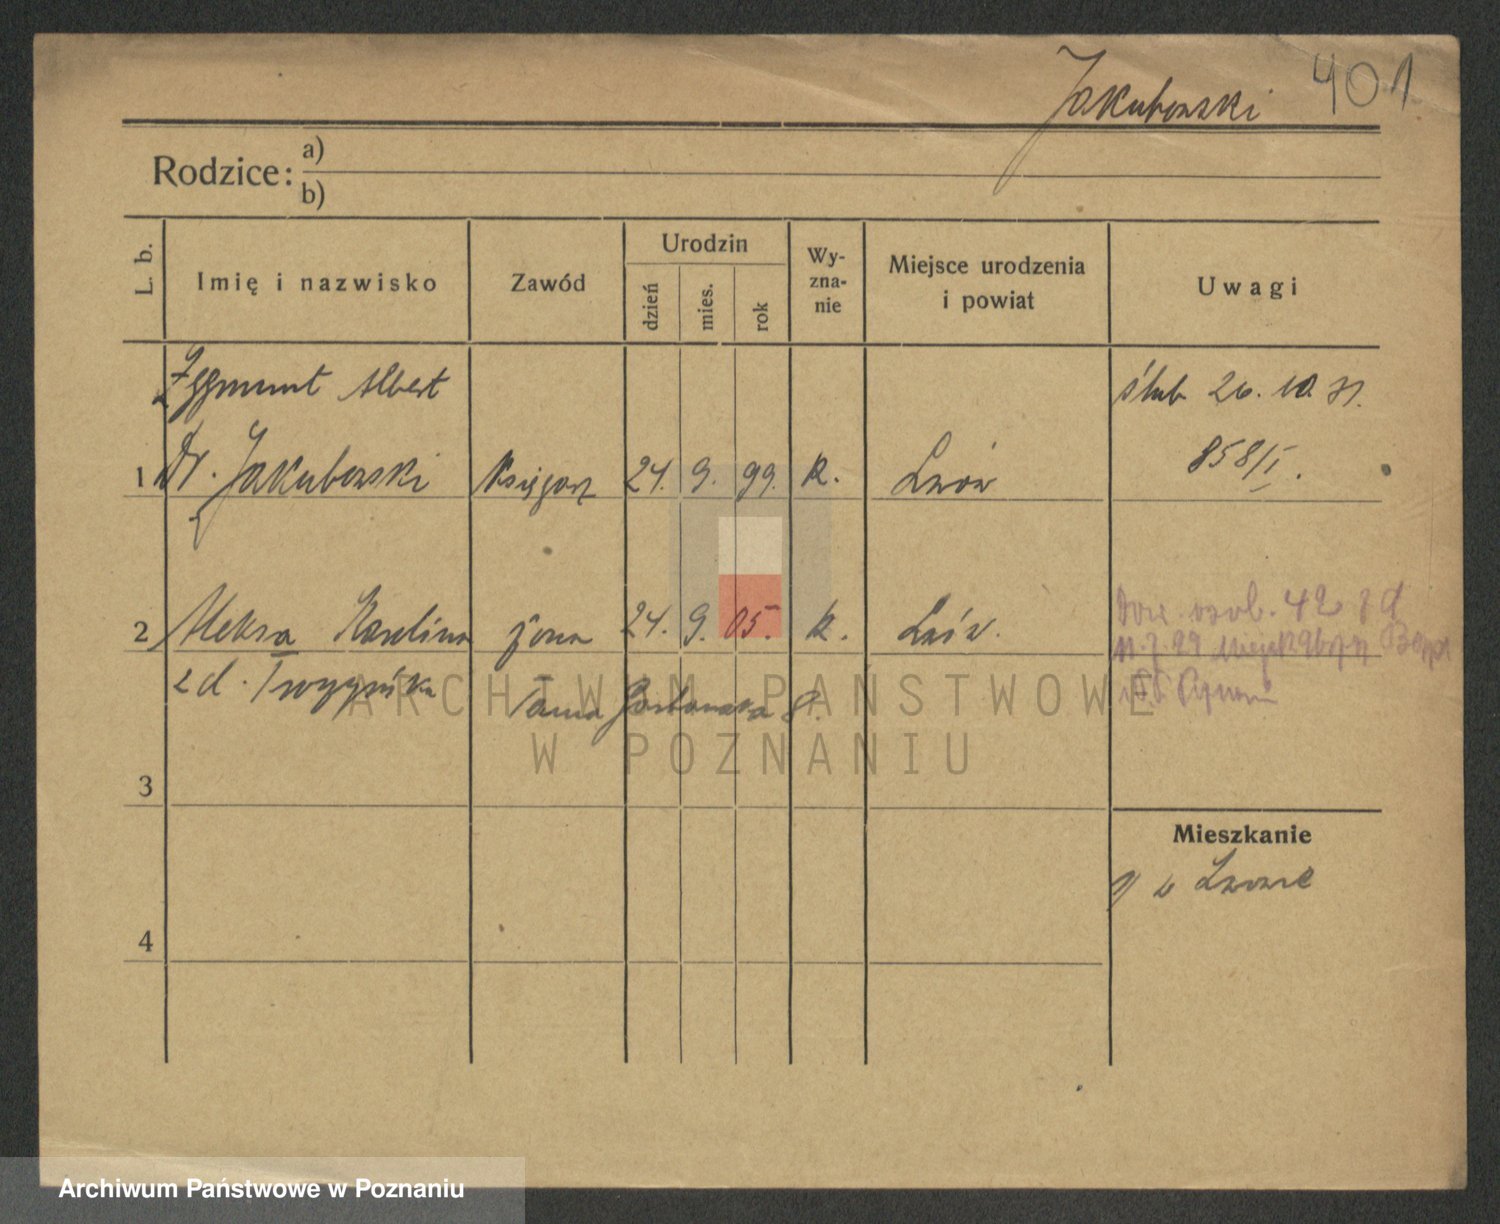 Jakubowski 401
Rodzice: a)
b)
L. b.
Imię i nazwisko
Zawód
Urodzin
dzień
mies.
rok
Wy-
zna-
nie
Miejsce urodzenia
i powiat
Uwagi
Zygmunt Albert
ślub 26. 10. 31.
1 Dr. Jakubowski Księgarz 24. 9. 99. k. Lwów
858/I.
2 Aleksa Karolina żona 24. 9. 05. k. Lwów.
Dow. osob. 42
z d.
Garbarska 8.
ARCHIWUM PAŃSTWOWE
W POZNANIU
3
Mieszkanie
w Lwowie
4
Archiwum Państwowe w Poznaniu